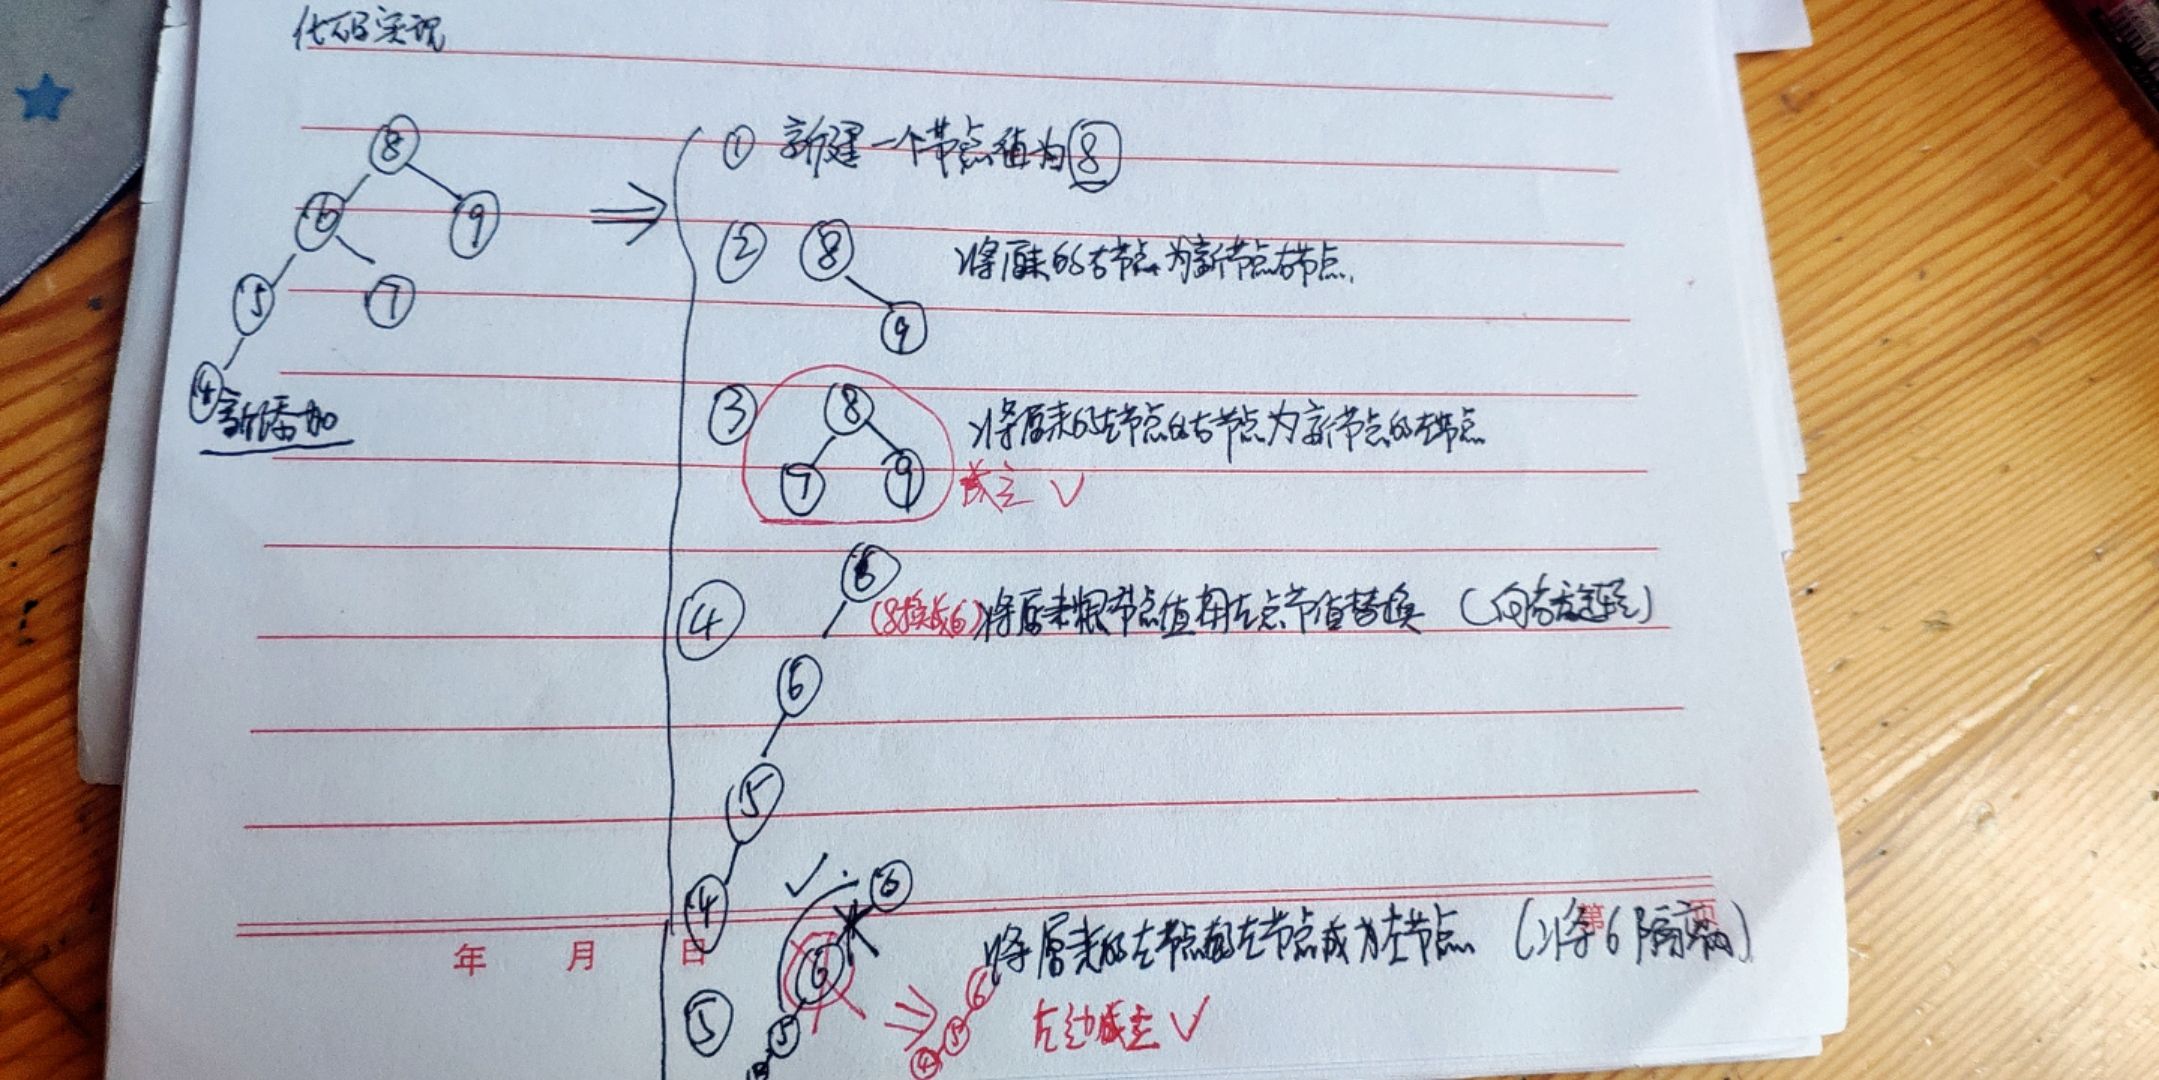 代码实现
8
6 9
5 7
4 新添加
① 新建一个节点值为8
② 8 将原来的右节点为新节点右节点.
9
③ 8 将原来的左节点的右节点为新节点的左节点
7 9 成立 ✓
④ 6 (8换成6) 将原来根节点值用左点节值替换 (向右旋转)
6
5
4
✓ 6
年 月 日 6 将原来的左节点的左节点成为左节点 (将6隔离)
⑤ 5 ⇒ 4 5 6 左边成立 ✓